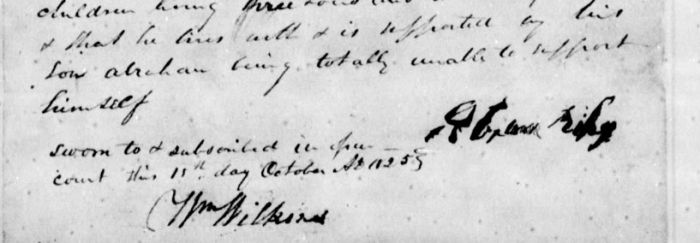 children living
& that he lives with & is supported by his
son abraham being totally unable to support
himself
sworn to & subscribed in open
court this 11th day October AD 1825
Wm Wilkins